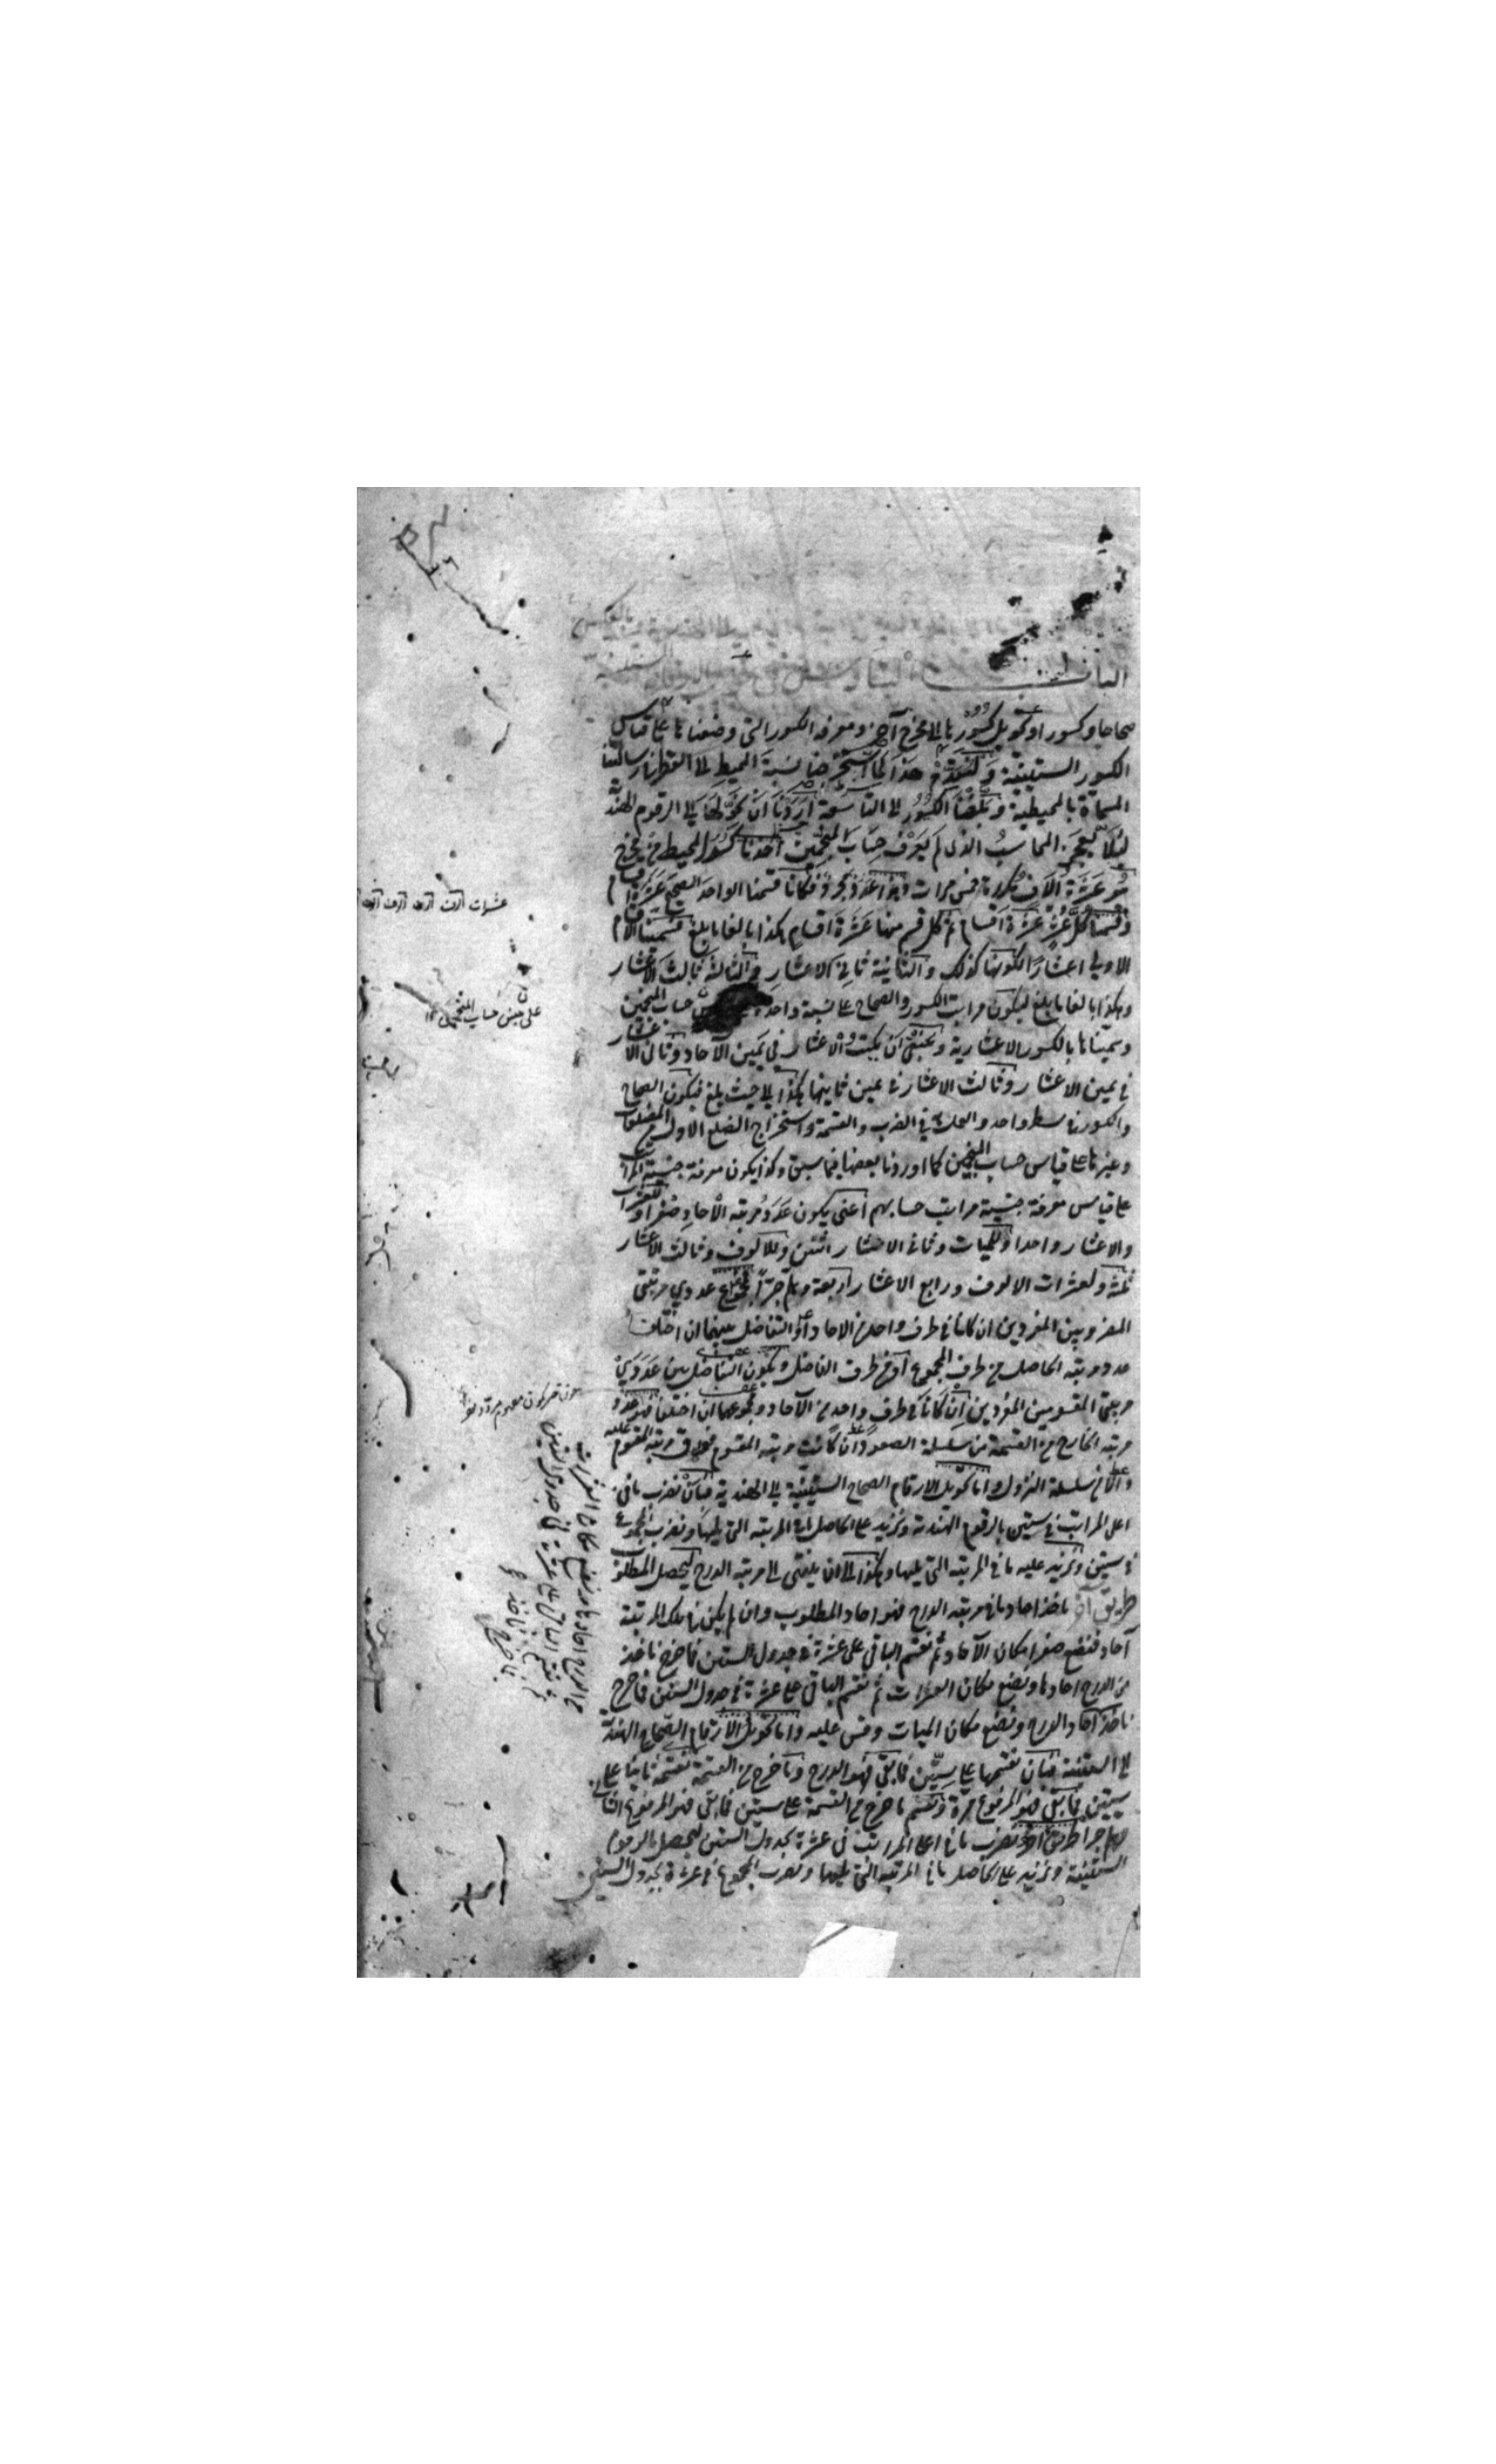 صحاحا وكسورا او تحويل كسورها الى مخرج آخر ومعرفة الكسور التى وضعناها على قياس
الكسور الستينية ولنقدم هذا لما استخرجنا نسبة المحيط الى القطر فى رسالتنا
المسماة بالمحيطية وبلغنا الكسور الى التاسعة اردنا ان نحولها الى الرقوم الهندية
لئلا يعجز المحاسب الذى لم يعرف حساب المنجمين اخذنا كسور المحيط من مخرج
هو عشرة آلاف مكررة خمس مرات وهو عدد مجرد فكانا قسمنا الواحد الصحيح عشرة اقسام
وقسمنا كل عشر عشرة اقسام ثم كل قسم منها عشرة اقسام هكذا بالغا ما بلغ فسمينا الاقسام
الاولى اعشارا لكونها كذلك والثانية ثانى الاعشار والثالثة ثالث الاعشار
وهكذا بالغا ما بلغ ليكون مراتب الكسور والصحاح على نسبة واحدة حساب المنجمين
وسميناها بالكسور الاعشارية وينبغى ان يكتب الاعشار فى يمين الآحاد وثانى الاعشار
فى يمين الاعشار وثالث الاعشار فى يمين ثانيها هكذا الى حيث بلغ فيكون الصحاح
والكسور فى سطر واحد والعمل فى الضرب والقسمة واستخراج الضلع الاول من المضلعات
وغيرها على قياس حساب المنجمين كما اوردنا بعضها فيما سبق وكذا يكون معرفة جنسية المراتب
على قياس معرفة جنسية مراتب حسابهم اعنى يكون عدد مرتبة الآحاد صفرا وللعشرات
والاعشار واحدا وللميات وثانى الاعشار اثنين وللالوف وثالث الاعشار
ثلثة ولعشرات الالوف ورابع الاعشار اربعة وهلم جرا فمجموع عددى مرتبتى
المضروبين المفردين ان كانا فى طرف واحد من الآحاد او التفاضل بينهما ان اختلفا
عدد مرتبة الحاصل من طرف المجموع او من طرف الفاضل ويكون التفاضل بين عددى
مرتبتى المقسومين المفردين ان كانا فى طرف واحد من الآحاد ومجموعهما ان اختلفا فهو عدد
مرتبة الخارج من القسمة من سلسلة الصعود ان كانت مرتبة المقسوم فوق مرتبة المقسوم عليه
والا فمن سلسلة النزول واما تحويل الارقام الصحاح الستينية الى الهندية فبان نضرب ما فى
اعلى المراتب فى ستين بالرقوم الهندية ونزيد على الحاصل ما فى المرتبة التى يليها ونضرب المجموع
فى ستين ونزيد عليه ما فى المرتبة التى يليها وهكذا الى ان ينتهى الى مرتبة الدرج ليحصل المطلوب
طريق آخر ناخذ احاد ما فى مرتبة الدرج فهو احاد المطلوب وان لم يكن فى تلك المرتبة
آحاد فنضع صفرا مكان الآحاد ثم نقسم الباقى على عشرة فى جدول الستين فما خرج ناخذ
من الدرج احادها ونضع مكان العشرات ثم نقسم الباقى على عشرة فى جدول الستين فما خرج
ناخذ آحاد الدرج ونضع مكان الميات وقس عليه واما تحويل الارقام الصحاح الهندية
الى الستينية فبان نقسمها على ستين فما بقى فهو الدرج وما خرج من القسمة نقسمه ثانيا على
ستين فما بقى فهو المرفوع مرة ونقسم ما خرج من القسمة على ستين فما بقى فهو المرفوع الثانى
وهلم جرا طريق آخر نضرب ما فى اعلى المراتب فى عشرة بجدول الستين ليحصل بالرقوم
الستينية ونزيد على الحاصل ما فى المرتبة التى يليها ونضرب المجموع فى عشرة بجدول الستين
على جنس حساب المنجمين